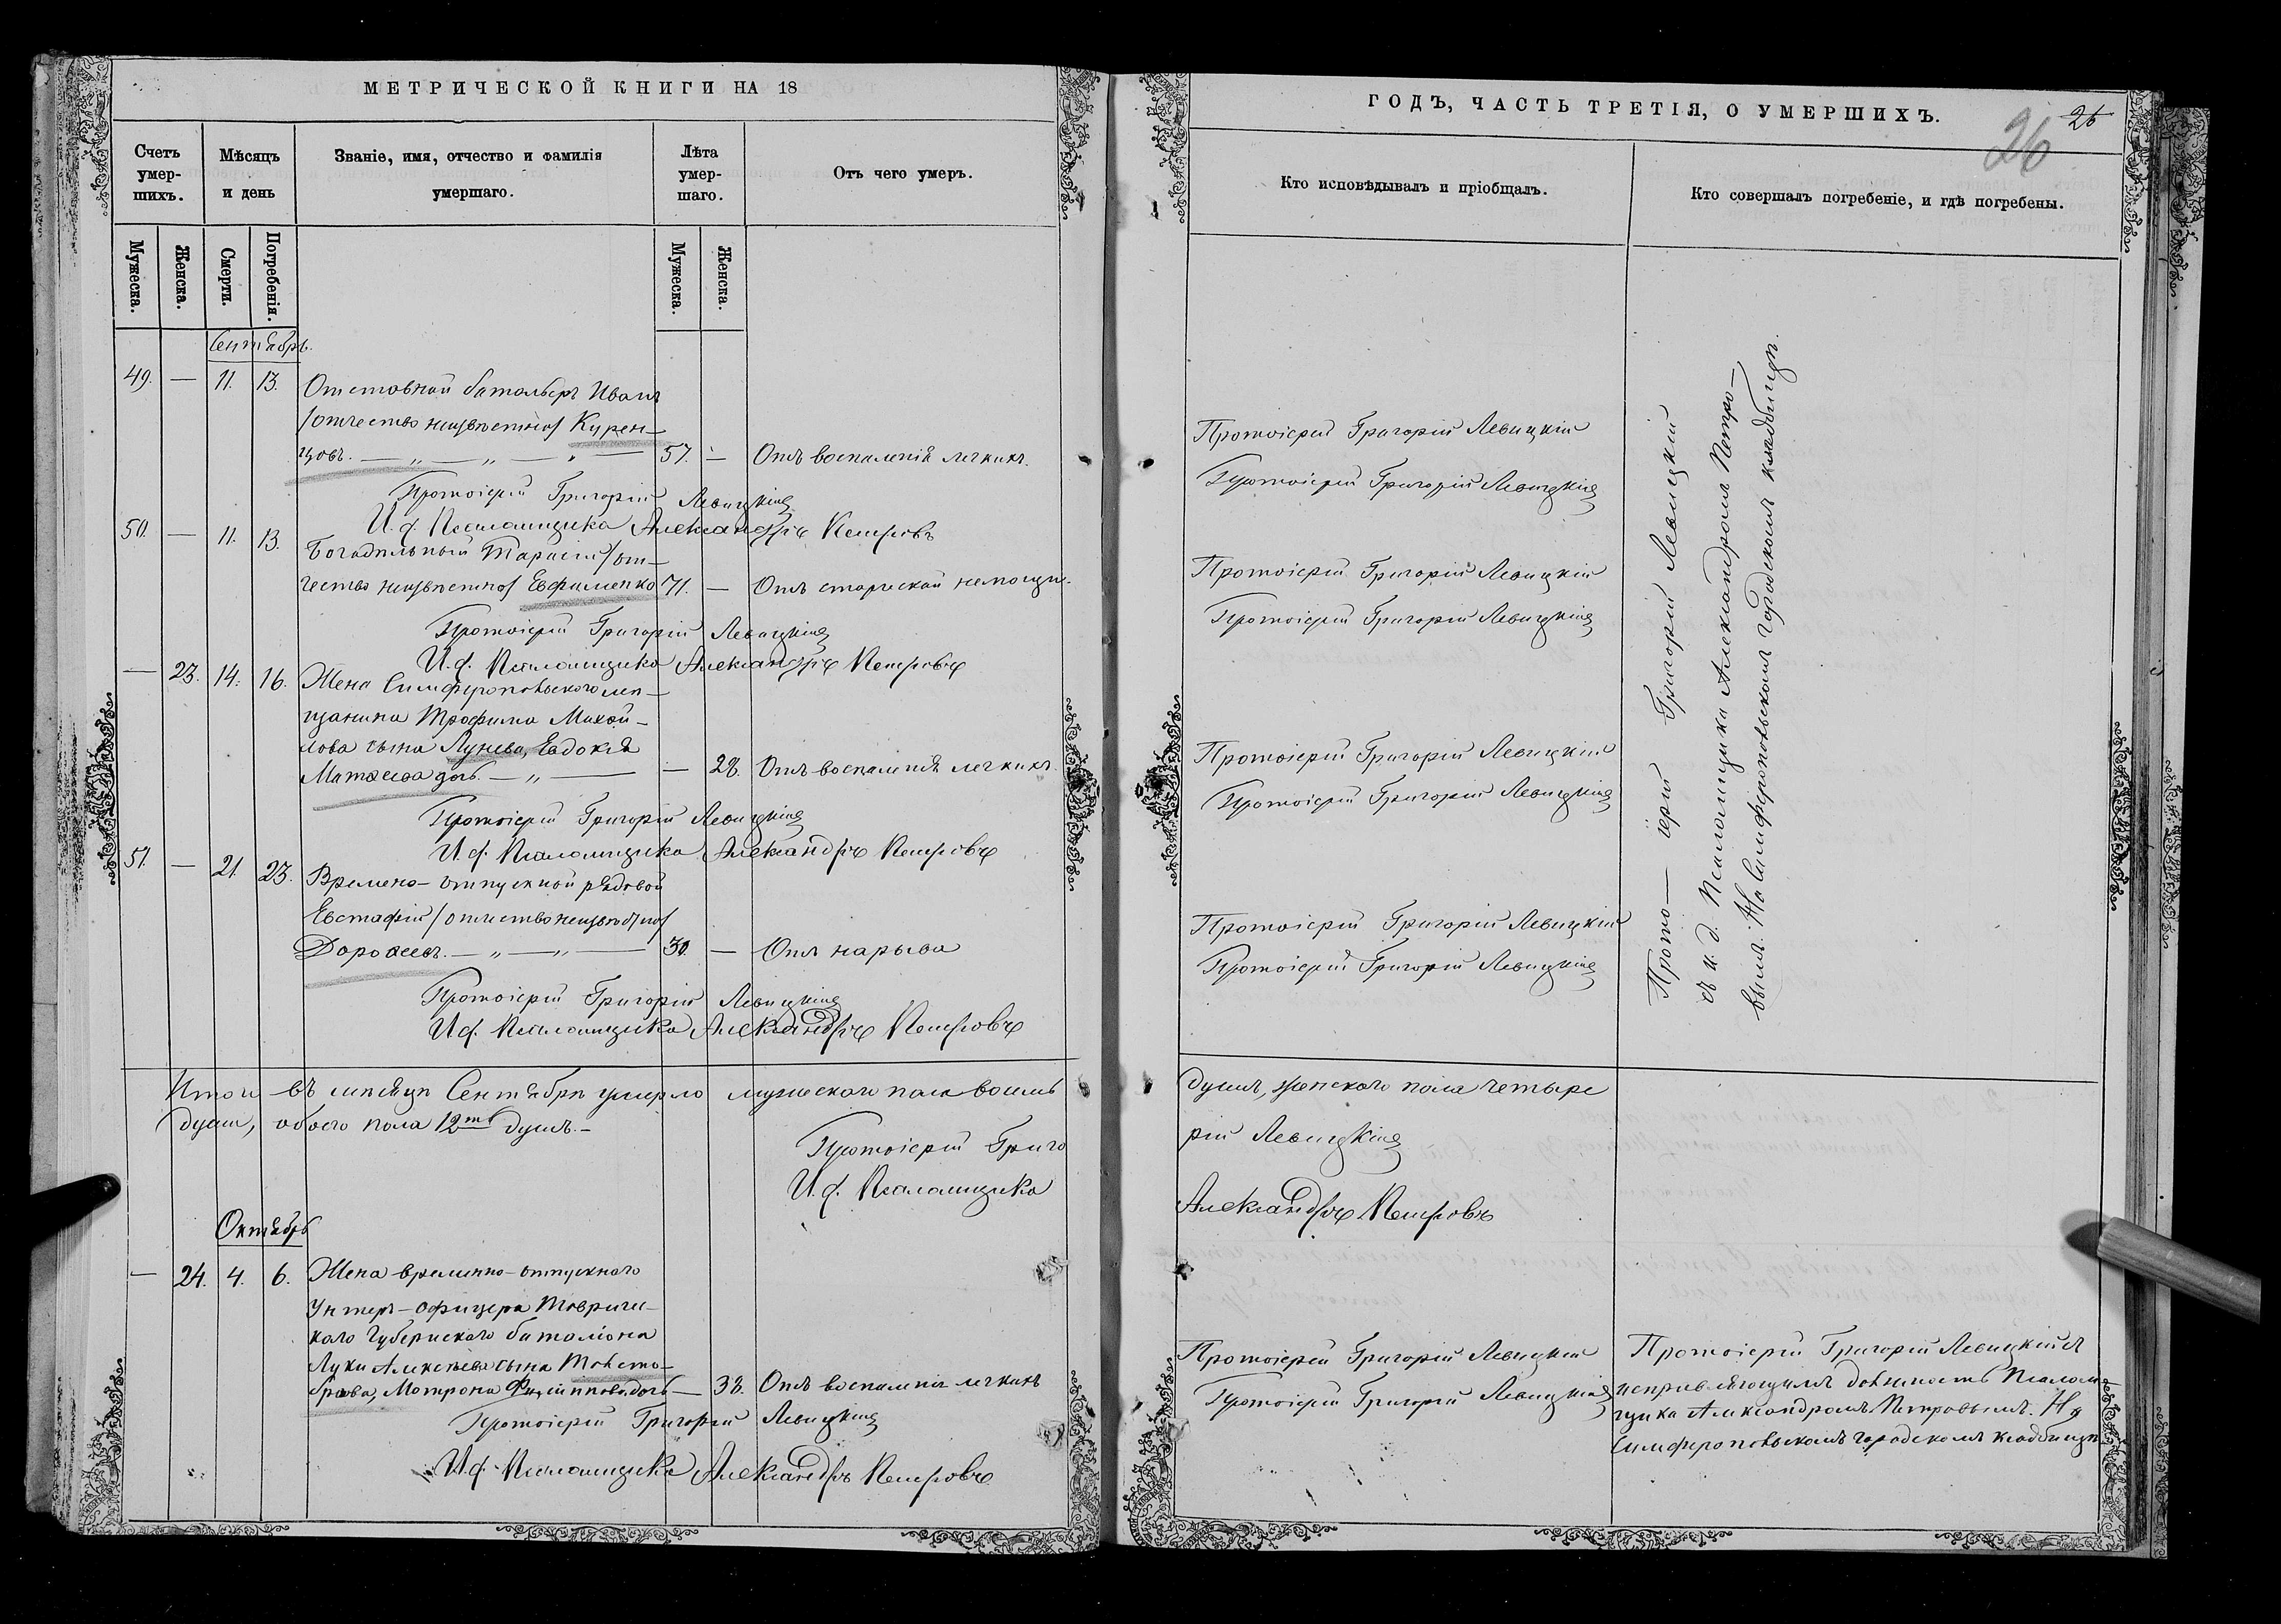 МЕТРИЧЕСКОЙ КНИГИ НА 18
Счетъ умер-шихъ.
Мѣсяцъ и день
Званіе, имя, отчество и фамилія умершаго.
Лѣта умер-шаго.
Отъ чего умеръ.
Мужеска.
Женска.
Смерти.
Погребенія.
Мужеска.
Женска.
Сентябрь.
49. — 11. 13. Отставной баталеръ Иванъ
/отчество неизвѣстно/ Курен-
цовъ. — „ — „ — „ — 57. — Отъ воспаленія легкихъ.
Протоіерей Григорій Левицкій
И. д. Псаломщика Александръ Петровъ
50. — 11. 13. Богадѣльный Тарасій /от-
чество неизвѣстно/ Евфименко 71. — Отъ старческой немощи.
Протоіерей Григорій Левицкій
И. д. Псаломщика Александръ Петровъ
— 23. 14. 16. Жена Симферопольского мѣ-
щанина Трофима Михай-
лова сына Лунева, Евдокія
Матѳеева дочь. — „ — — 28. Отъ воспаленія легкихъ.
Протоіерей Григорій Левицкій
И. д. Псаломщика Александръ Петровъ
51. — 21. 23. Времено-отпускной рядовой
Евстафій /отчество неизвѣстно/
Дороѳеевъ. — „ — „ — 30. — Отъ нарыва
Протоіерей Григорій Левицкій
И. д. Псаломщика Александръ Петровъ
Итого въ мѣсяцѣ Сентябрѣ умерло мужескаго пола восемь
душ, обоего пола 12ть душъ. –
Протоіерей Григо
И. д. Псаломщика
Октябрь
— 24. 4. 6. Жена временно-отпускного
Унтеръ-офицера Тавриче-
каго Губернскаго баталіона
Луки Алексѣева сына Толсто-
брова, Матрона Филиппова дочь — 38. Отъ воспаленія легкихъ
Протоіерей Григорій Левицкій
И. д. Псаломщика Александръ Петровъ
ГОДЪ, ЧАСТЬ ТРЕТІЯ, О УМЕРШИХЪ.
26
26
Кто исповѣдывалъ и пріобщалъ.
Кто совершалъ погребеніе, и гдѣ погребены.
Протоіерей Григорій Левицкій
Протоіерей Григорій Левицкій
Протоіерей Григорій Левицкій
Протоіерей Григорій Левицкій
Протоіерей Григорій Левицкій
Протоіерей Григорій Левицкій
Протоіерей Григорій Левицкій
Протоіерей Григорій Левицкій
Прото — іерей Григорій Левицкій
съ и. д. Псаломщика Александромъ Петро-
вымъ. На Симферопольскомъ городскомъ кладбищѣ.
душъ, женского пола четыре
рій Левицкій
Александръ Петровъ
Протоіерей Григорій Левицкій
Протоіерей Григорій Левицкій
Протоіерей Григорій Левицкій съ
исправляющимъ должность Псалом-
щика Александромъ Петровымъ. На
Симферопольскомъ городскомъ кладбищѣ